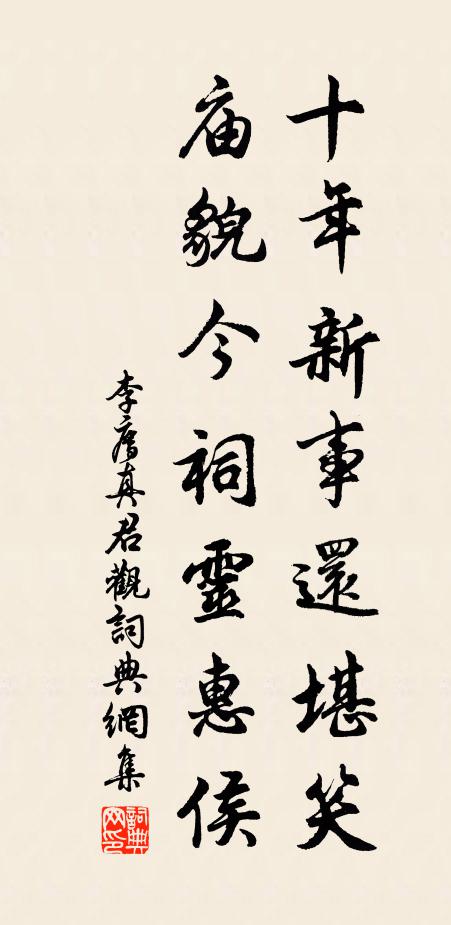 十年新事還堪笑
庙貌今祠靈惠侯
李膺真君觀詞典網集
詞典網印